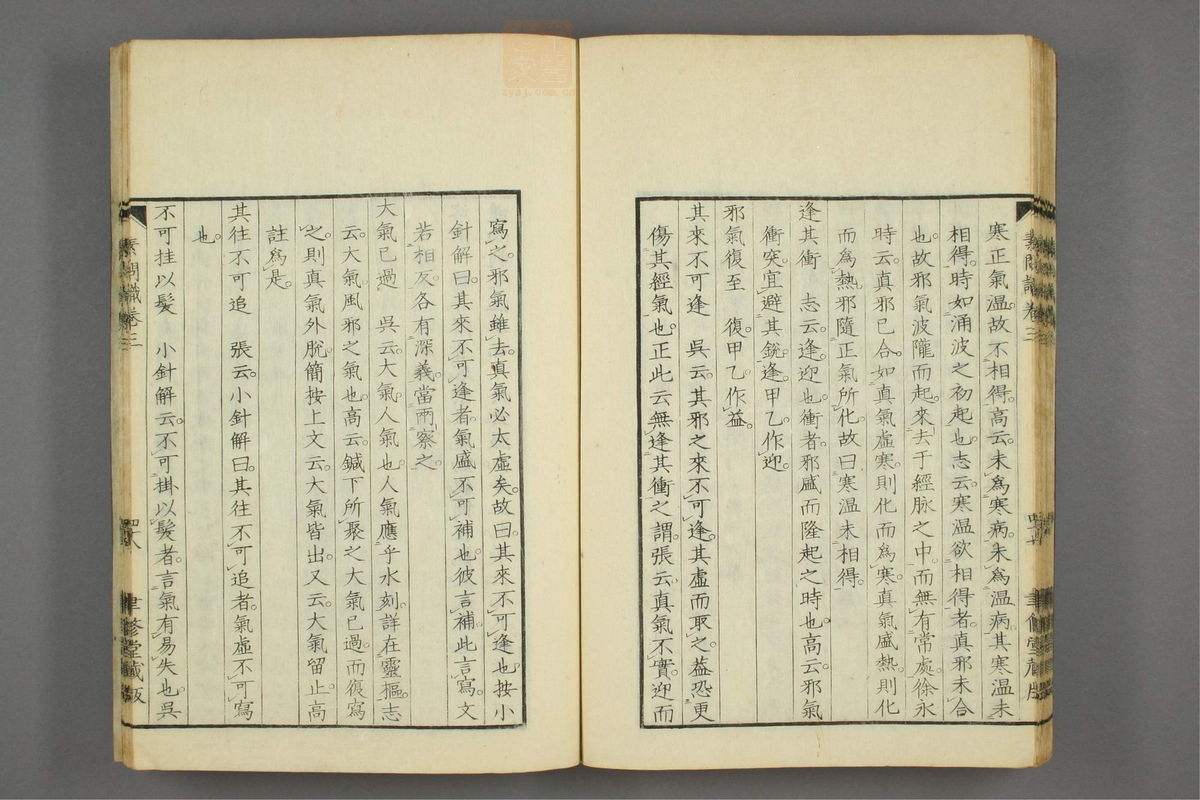 寒正氣温。故不相得。高云。未爲寒病。未爲温病。其寒温未
相得。時如涌波之初起也。志云。寒温欲相得者。真邪未合
也。故邪氣波隴而起。來去于經脉之中。而無有常處。徐永
時云。真邪已合。如真氣虛寒。則化而爲寒。真氣盛熱。則化
而爲熱。邪隨正氣所化。故曰寒温未相得。
逢其衝 志云。逢。迎也。衝者。邪盛而隆起之時也。高云。邪氣
衝突。宜避其銳。逢。甲乙作迎。
邪氣復至 復。甲乙作益。
其來不可逢 吳云。其邪之來不可逢。其虛而取之。益恐更
傷其經氣也。正此云無逢其衝之謂。張云。真氣不實。迎而
素問識卷三
聿修堂藏版
寫之。邪氣雖去。真氣必太虛矣。故曰。其來不可逢也。按小
針解曰。其來不可逢者。氣盛不可補也。彼言補。此言寫。文
若相反。各有深義。當兩察之。
大氣已過 吳云。大氣。人氣也。人氣應乎水刻。詳在靈樞。志
云。大氣。風邪之氣也。高云。鍼下所聚之大氣已過。而復寫
之。則真氣外脫。簡按上文云。大氣皆出。又云。大氣留止。高
註爲是。
其往不可追 張云。小針解曰。其往不可追者。氣虛不可寫
也。
不可挂以髮 小針解云。不可掛以髮者。言氣有易失也。吳
素問識卷三
四六
聿修堂藏版